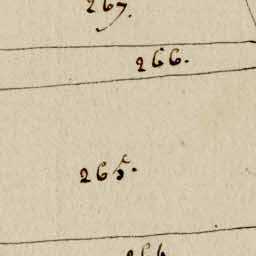 267.
266.
265.